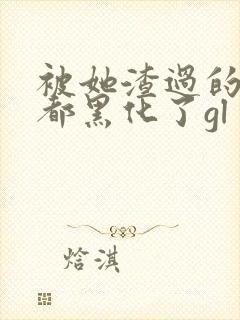 被她渣過的
都黑化了gl
焓淇